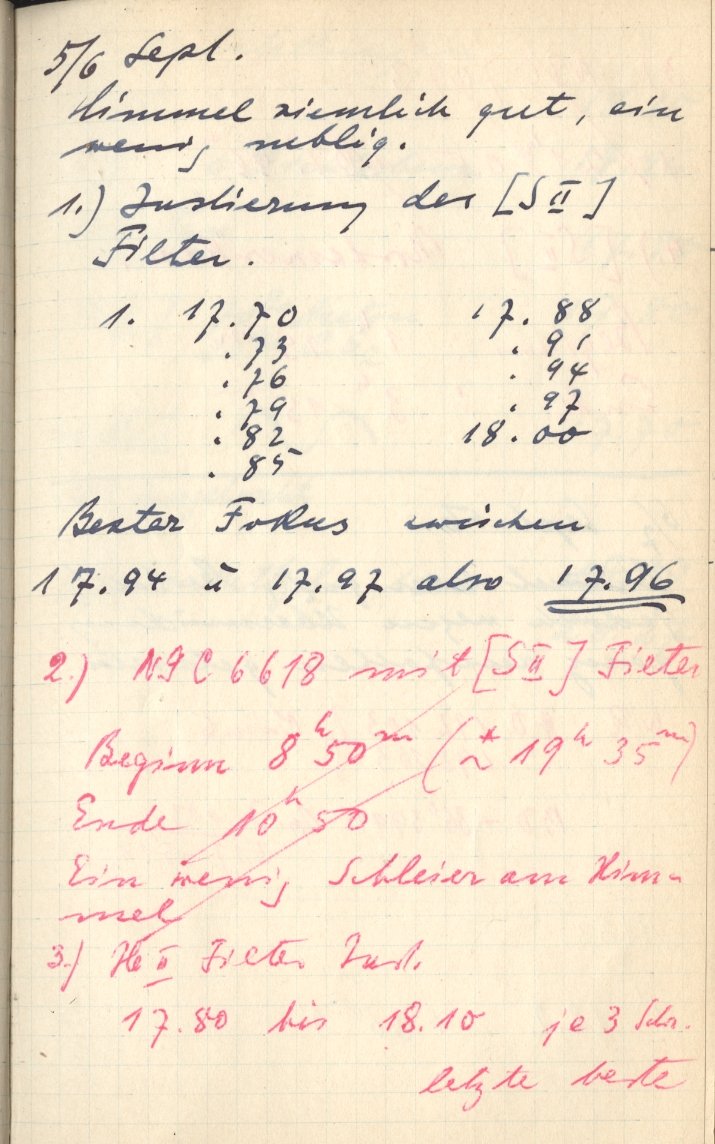 5/6 Sept.
Himmel ziemlich gut, ein
wenig neblig.
1.) Justierung des [S II]
Filter.
1. 17.70 17.88
.73 .91
.76 .94
.79 .97
.82 18.00
.85
Bester Fokus zwischen
17.94 u 17.97 also 17.96
2.) NGC 6618 mit [S II] Filter
Beginn 8h 50m (~* 19h 35m)
Ende 10h 50
Ein wenig Schleier am Him-
mel
3.) He II Filter Just.
17.80 bis 18.10 je 3 Skr.
letzte beste